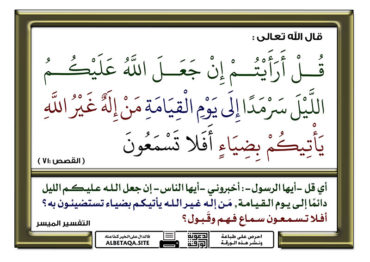 قال الله تعالى :
قُــلْ أَرَأَيْتُــمْ إِنْ جَعَــلَ اللَّهُ عَلَيْكُــمُ
اللَّيْلَ سَرْمَدًا إِلَى يَوْمِ الْقِيَامَةِ مَنْ إِلَهٌ غَيْرُ اللَّهِ
يَأْتِيكُمْ بِضِيَاءٍ أَفَلَا تَسْمَعُونَ
( القصص :٧١ )
أي قل -أيها الرسول-: أخبروني -أيها الناس- إن جعل الله عليكم الليل
دائمًا إلى يوم القيامة, مَن إله غير الله يأتيكم بضياء تستضيئون به؟
أفلا تسمعون سماع فهم وقَبول؟
التفسير الميسر
فالدال على الخير كفاعله
ALBETAQA.SITE
احرص على طباعة
ونشر هذه الورقة